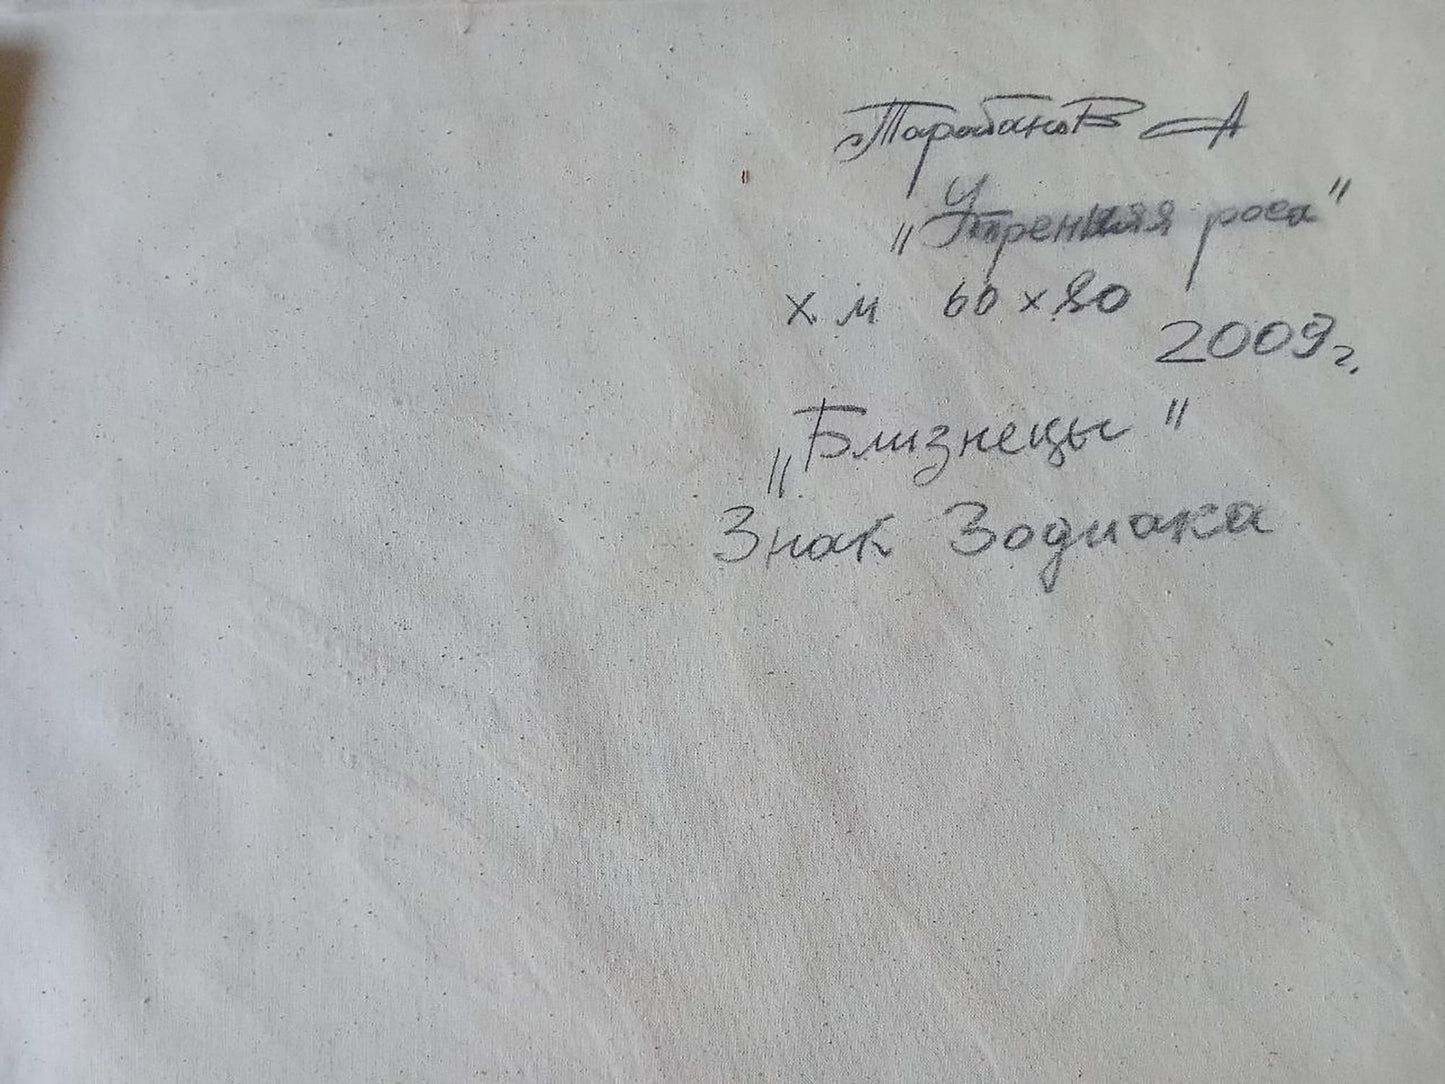 Тарабанов А
„Утренняя роса"
х. м 60 х 80
2009 г.
„Близнецы"
Знак Зодиака